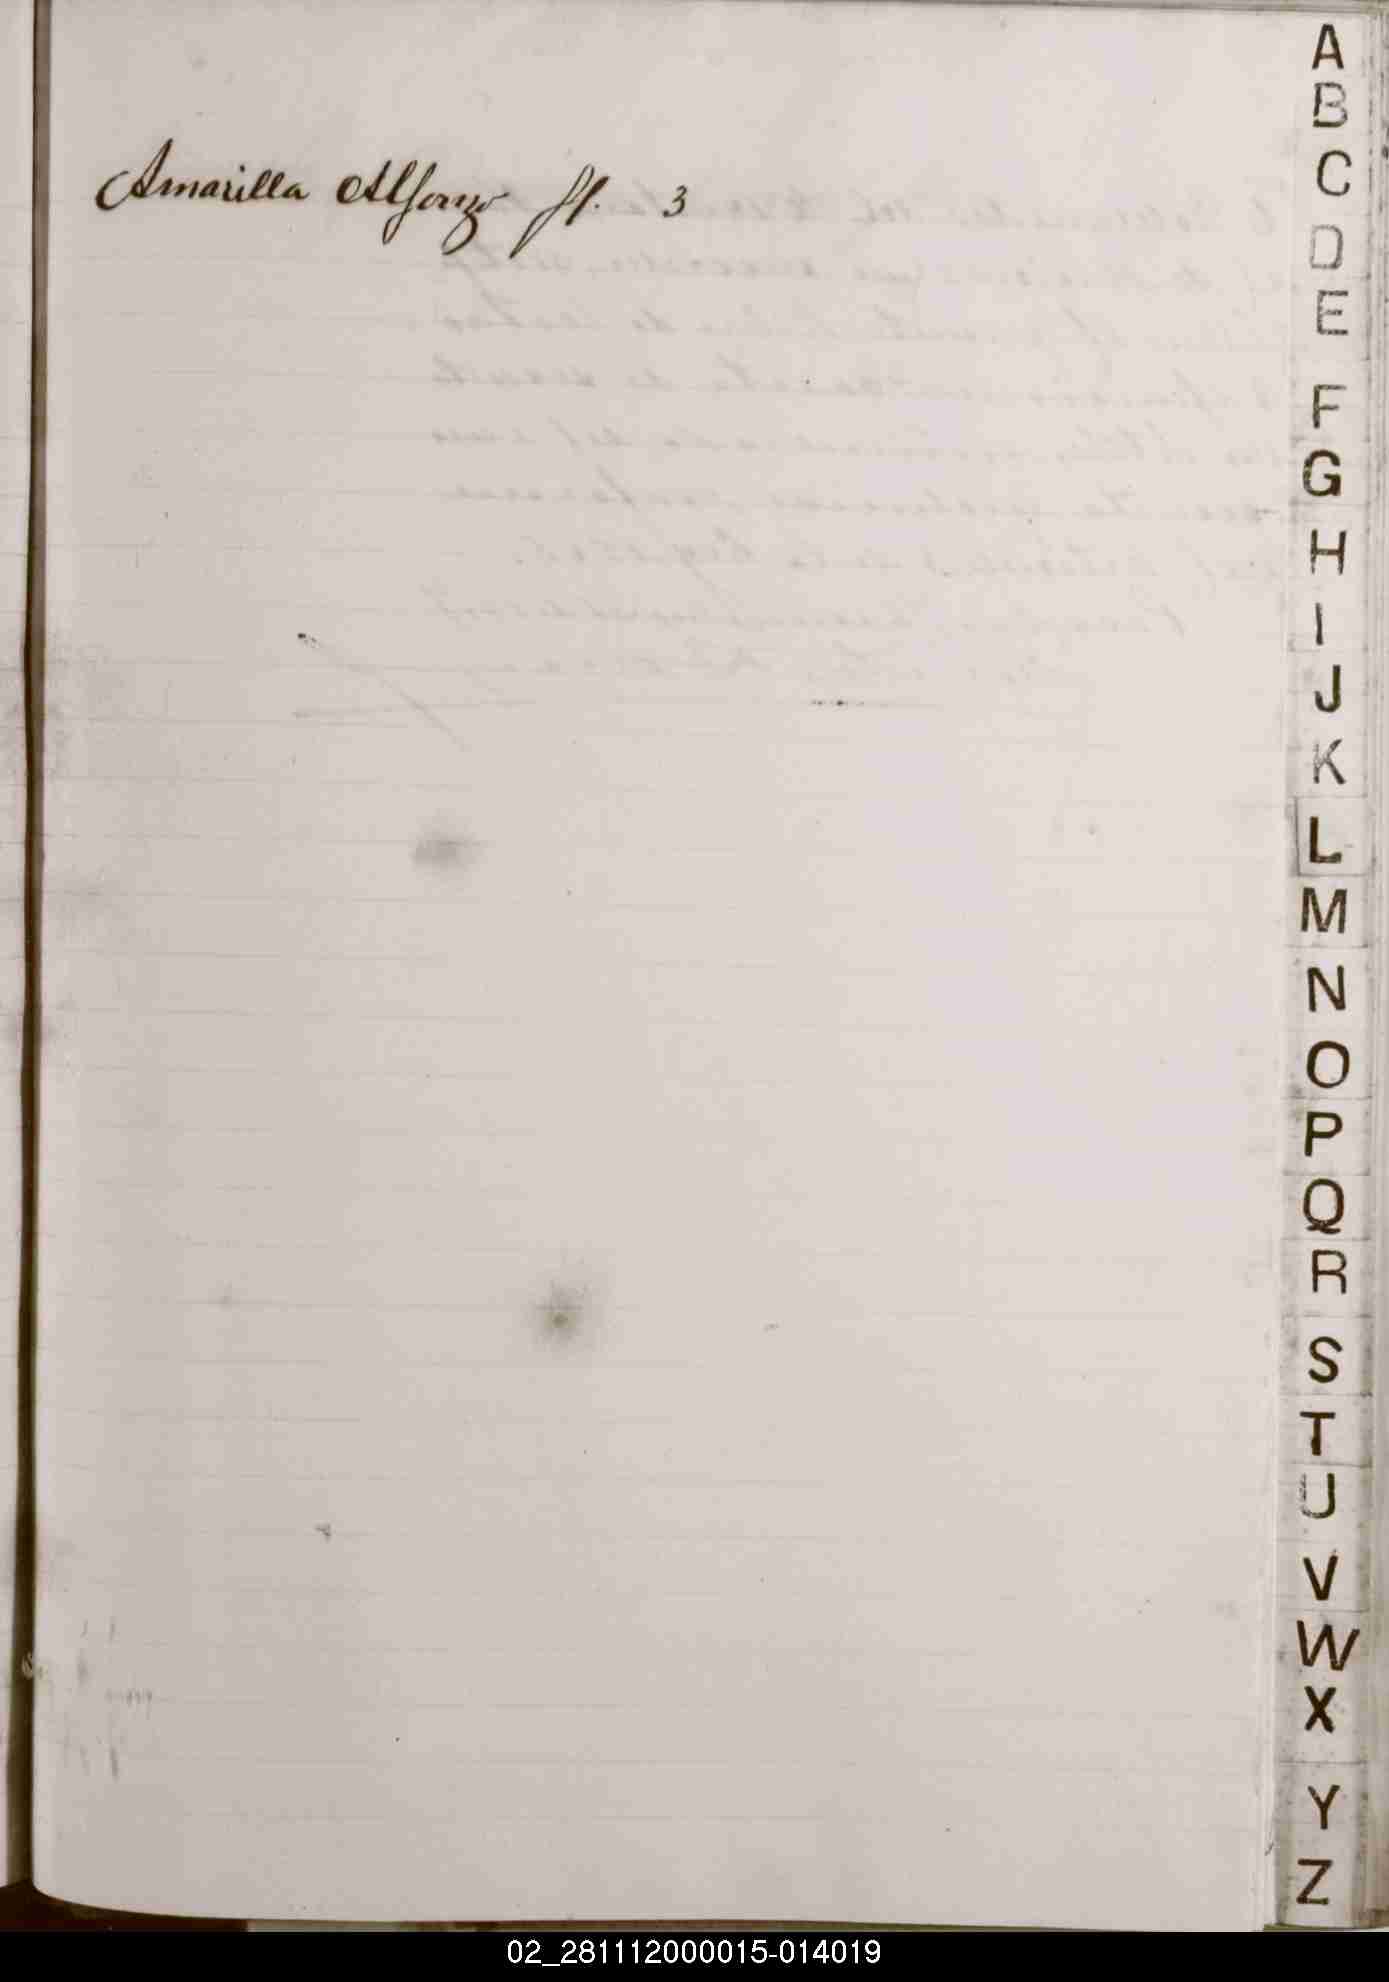 Amarilla Alfonzo ff. 3
A
B
C
D
E
F
G
H
I
J
K
L
M
N
O
P
Q
R
S
T
U
V
W
X
Y
Z
02_281112000015-014019